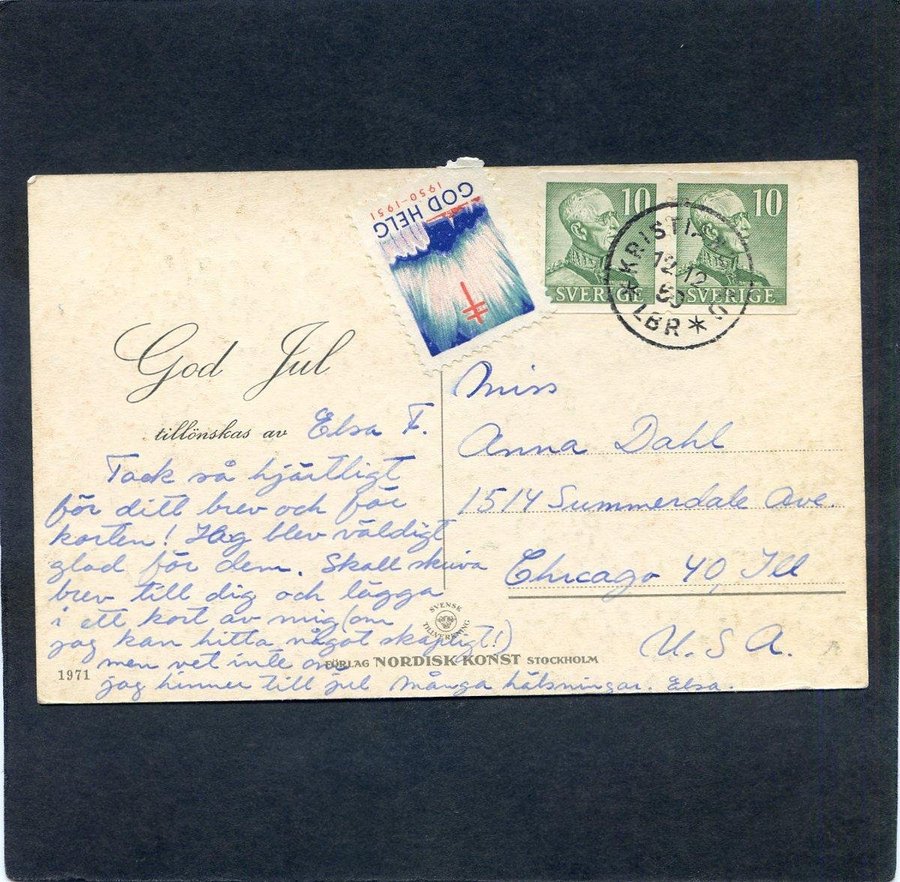 GOD HELG
1950-1951
10 10
SVERIGE SVERIGE
12.12
50
LBR
God Jul
tillönskas av Elsa F.
Tack så hjärtligt
för ditt brev och för
korten! Jag blev väldigt
glad för dem. Skall skriva
brev till dig och lägga
i ett kort av mig (om
jag kan hitta något skapligt!)
men vet inte om
jag hinner till jul många hälsningar. Elsa.
Miss
Anna Dahl
1514 Summerdale Ave.
Chicago 40, Ill
U.S.A.
SVENSK
TILLVERKNING
FÖRLAG NORDISK KONST STOCKHOLM
1971